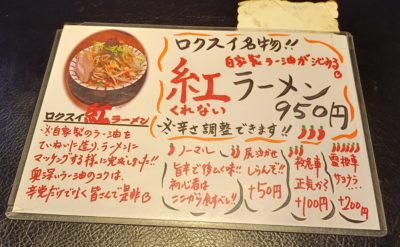 ロクスイ名物!!
自家製ラー油がシビれる。
紅ラーメン
くれない
950円
※辛さ調整できます!!
ロクスイ紅ラーメン
※自家製のラー油を
ていねいに造り、ラーメンに
マッチングする様に完成しました!!
奥深いラー油のコクは、
辛党だけでなく皆さんで是非
ノーマル
旨辛で
初心者は
ここから食すべし!!
尻泣かせ
しらんぞ!!
+50円
救急車
正気か?
+100円
霊柩車
サヨナラ...
+200円